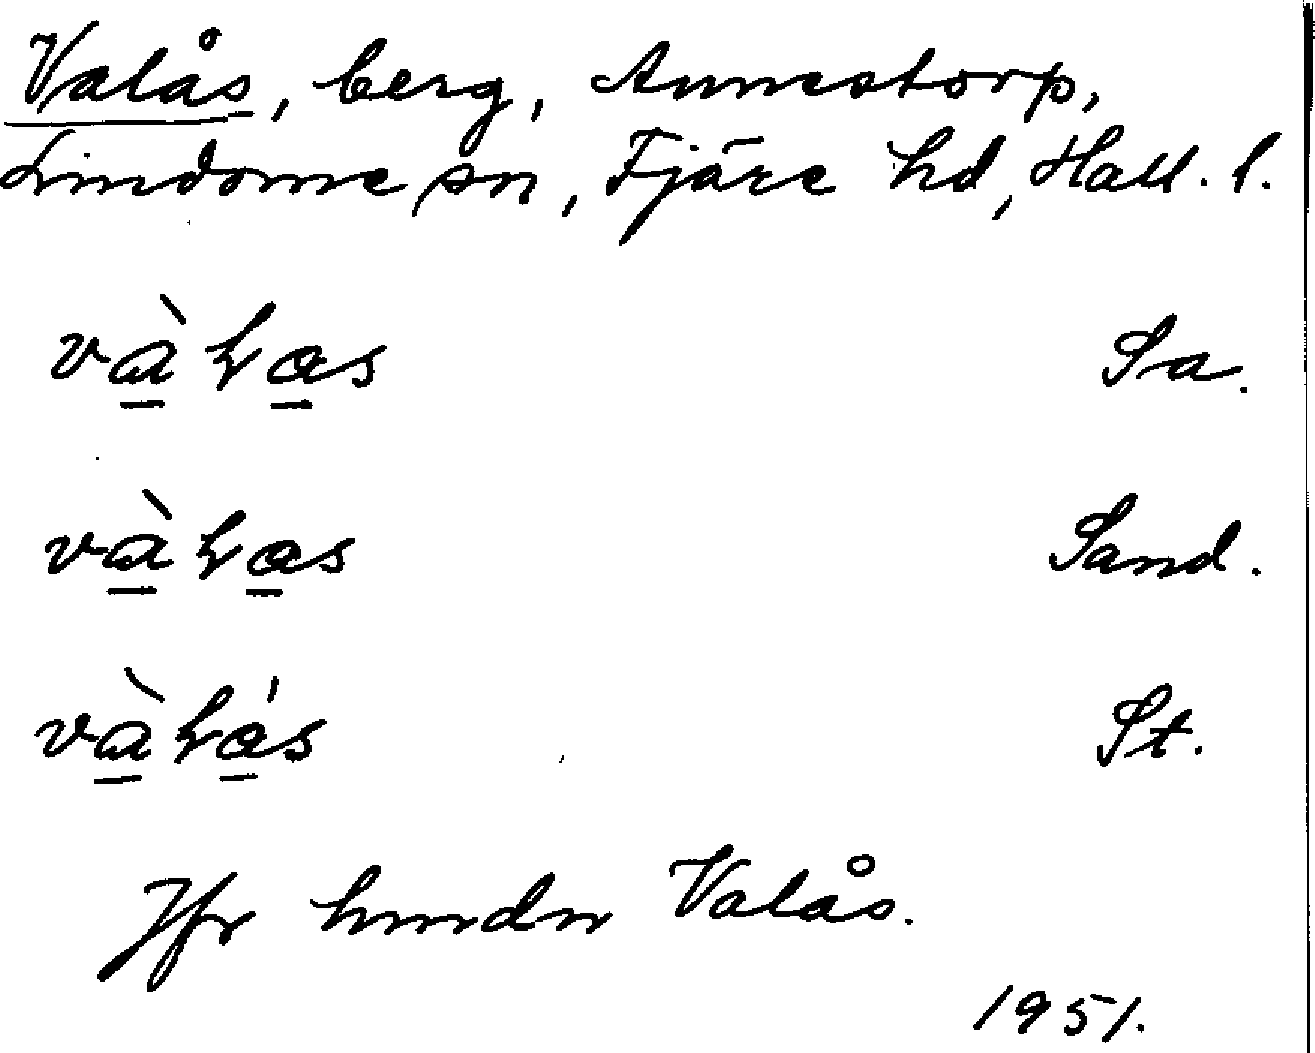 Valås, berg, Annestorp,
Lindome sn, Fjäre hd, Hall. l.
vàłas Sa.
vàłas Sand.
vàłás St.
Jfr hmdn Valås.
1951.